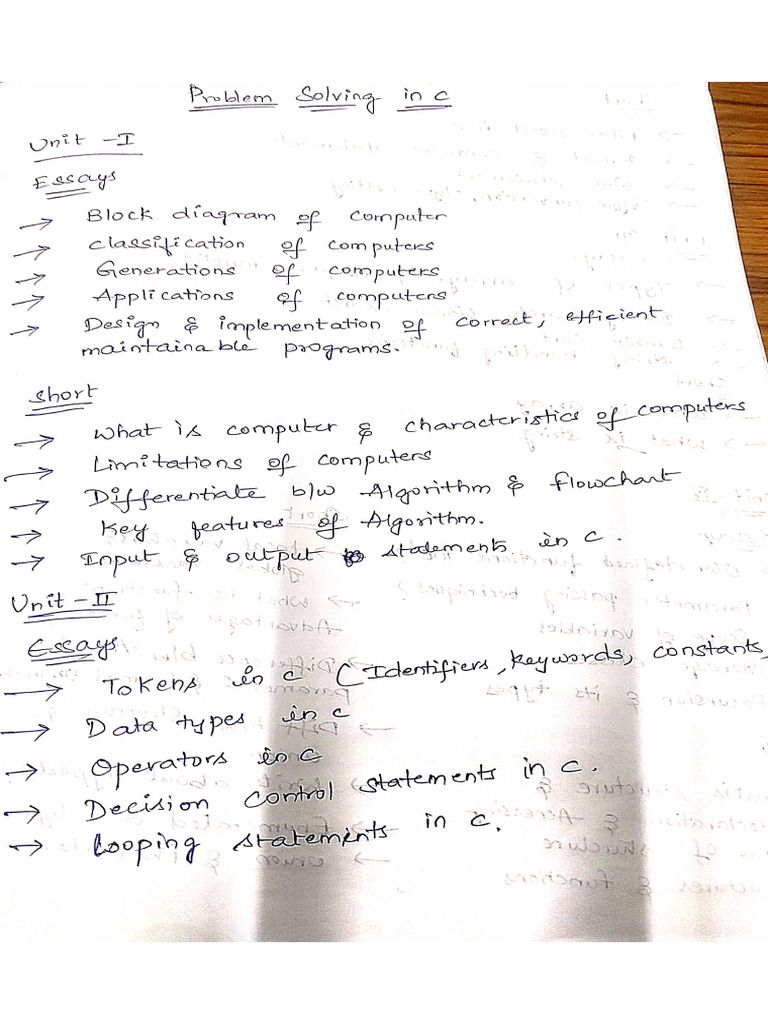 Problem Solving in c
Unit - I
Essays
→ Block diagram of computer
→ classification of computers
→ Generations of computers
→ Applications of computers
→ Design & implementation of correct, efficient
maintainable programs.
Short
→ What is computer & characteristics of computers
→ Limitations of computers
→ Differentiate b/w Algorithm & flowchart
→ Key features of Algorithm.
→ Input & output statements in c.
Unit - II
Essays
→ Tokens in c (Identifiers, keywords, constants,
→ Data types in c
→ Operators in c
→ Decision control statements in c.
→ Looping statements in c.